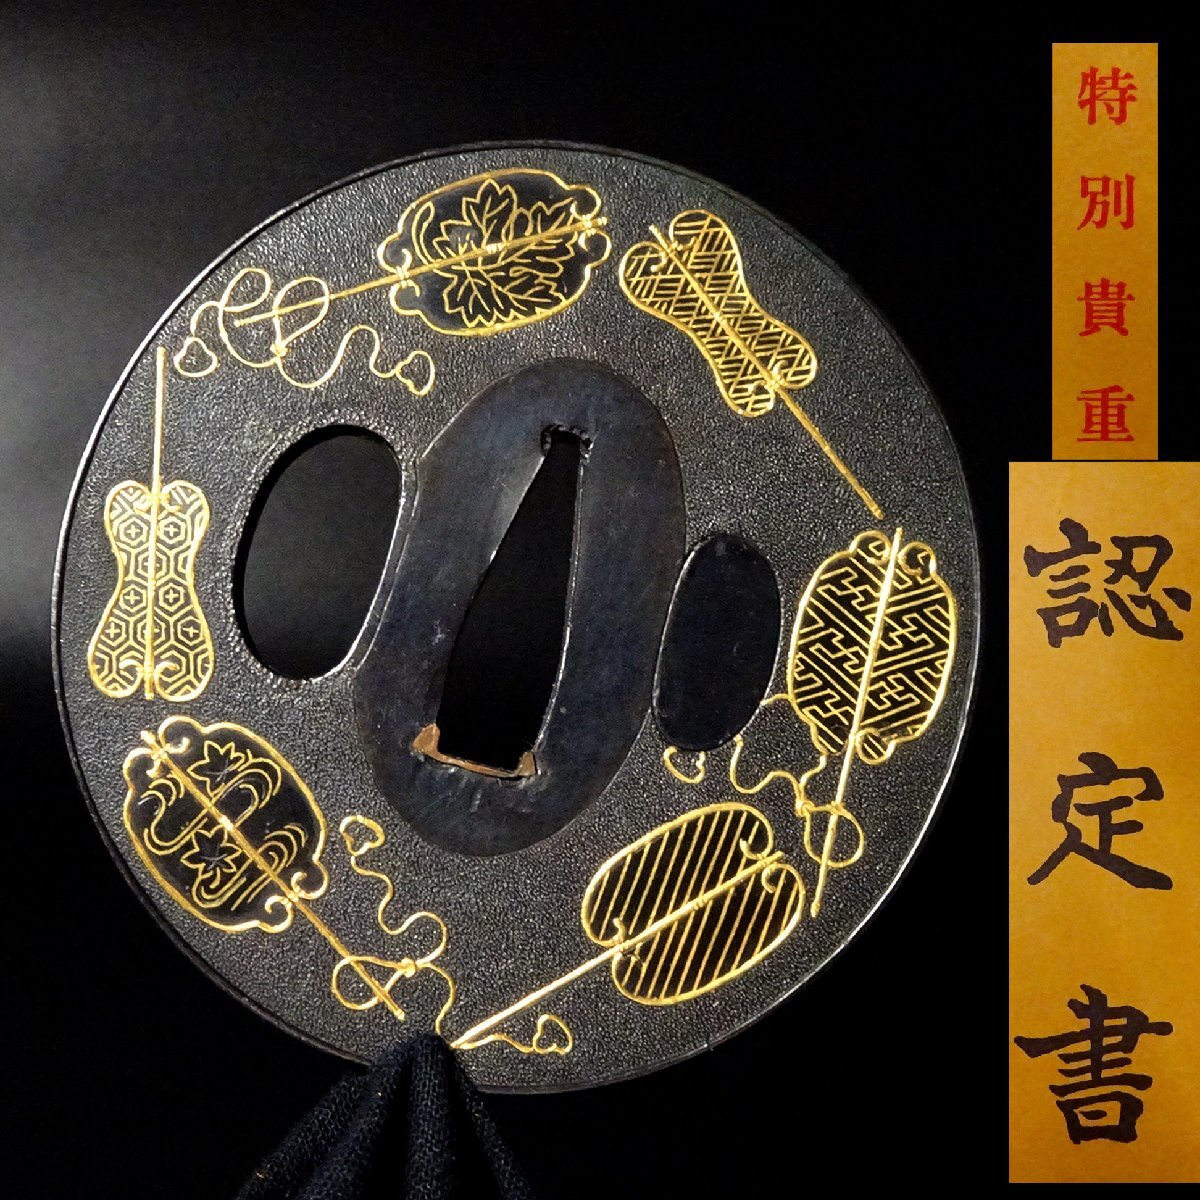 特別貴重
認定書